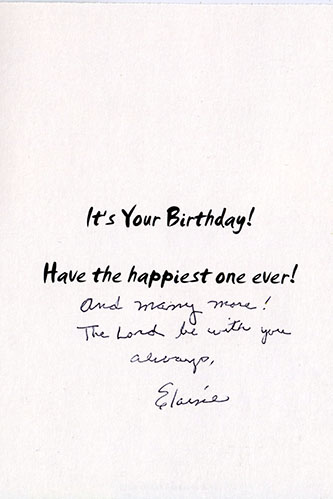 It's Your Birthday!
Have the happiest one ever!
And many more!
The Lord be with you
always,
Elaisie